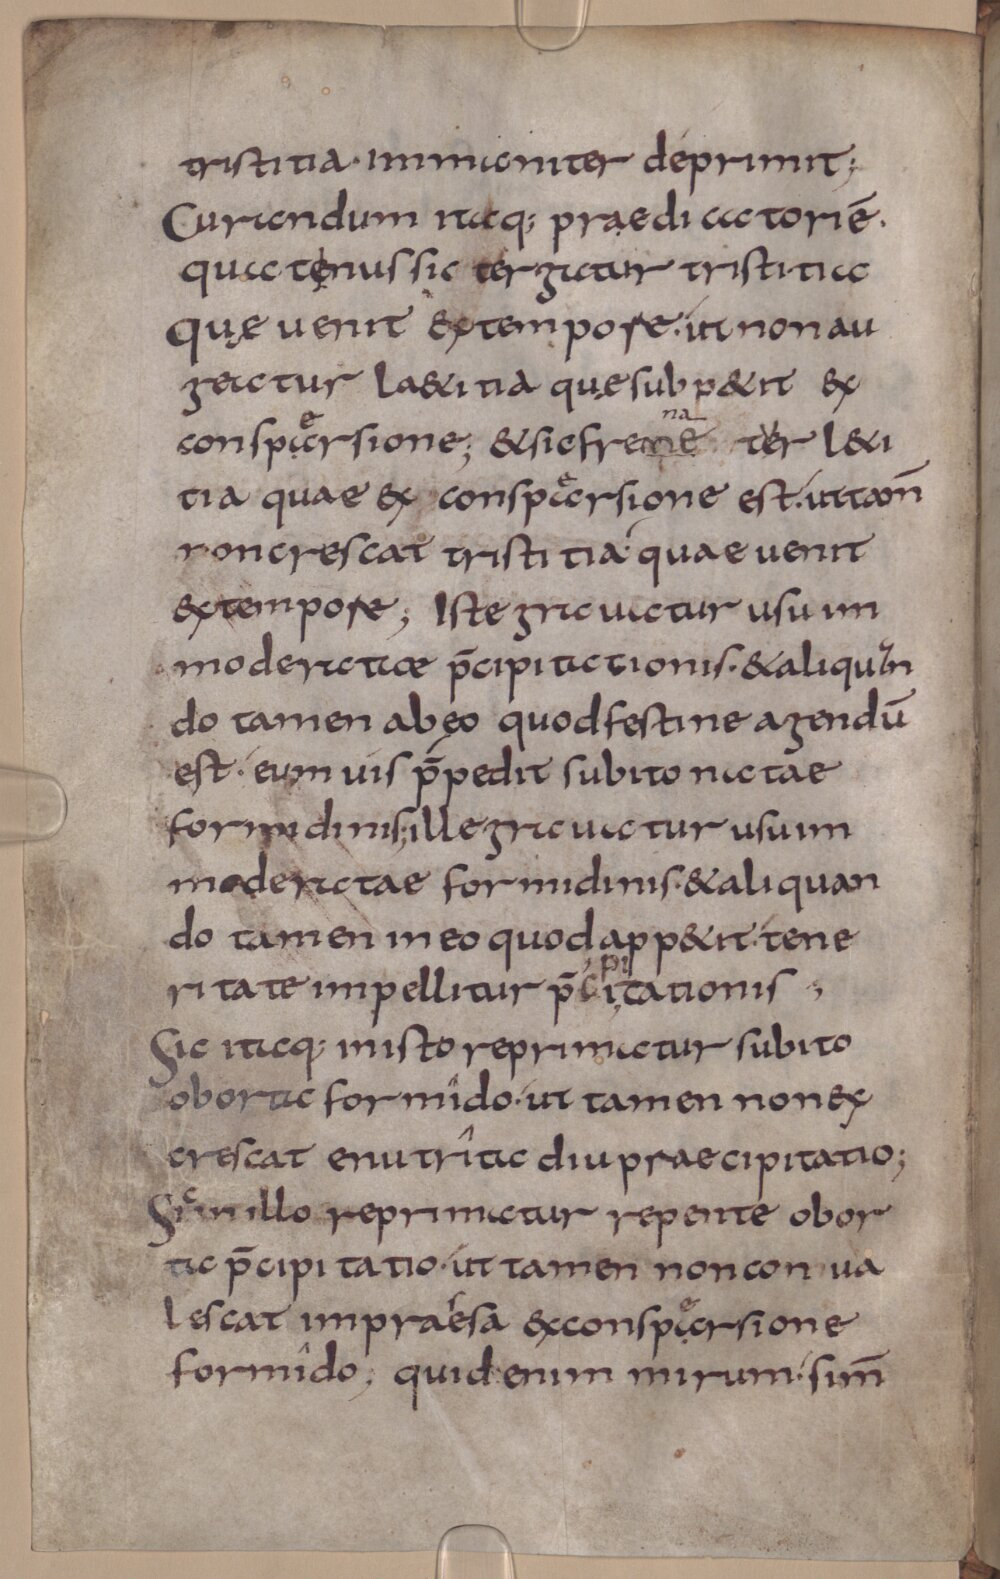 tristitia · inmaniter deprimit ;
Curandum itaq; praedicatori ē ·
quatenus sic tergatur tristitia
quę uenit ex tempore · ut non au
geatur laetitia quę subp&it ex
conspersione ; & sic frena&ur l&i
tia quae ex conspersione est · ut tam̄
non crescat tristitia quae uenit
ex tempore ; Iste grauatur usu im
moderatae p̄cipitationis · & aliquan
do tamen ab eo quod festine agendū
est · eum uis p̄pedit subito natae
formidinis ; ille grauatur usu im
moderatae formidinis · & aliquan
do tamen in eo quod app&it · teme
ritate impellitur p̄cipitationis ;
Sic itaq; in isto reprimatur subito
oborta formido · ut tamen non ex
crescat enutrita diu praecipitatio ;
Sic in illo reprimatur repente obor
ta p̄cipitatio · ut tamen non conua
lescat impraessa ex conspersione
formido ; quid enim mirum · si m̄